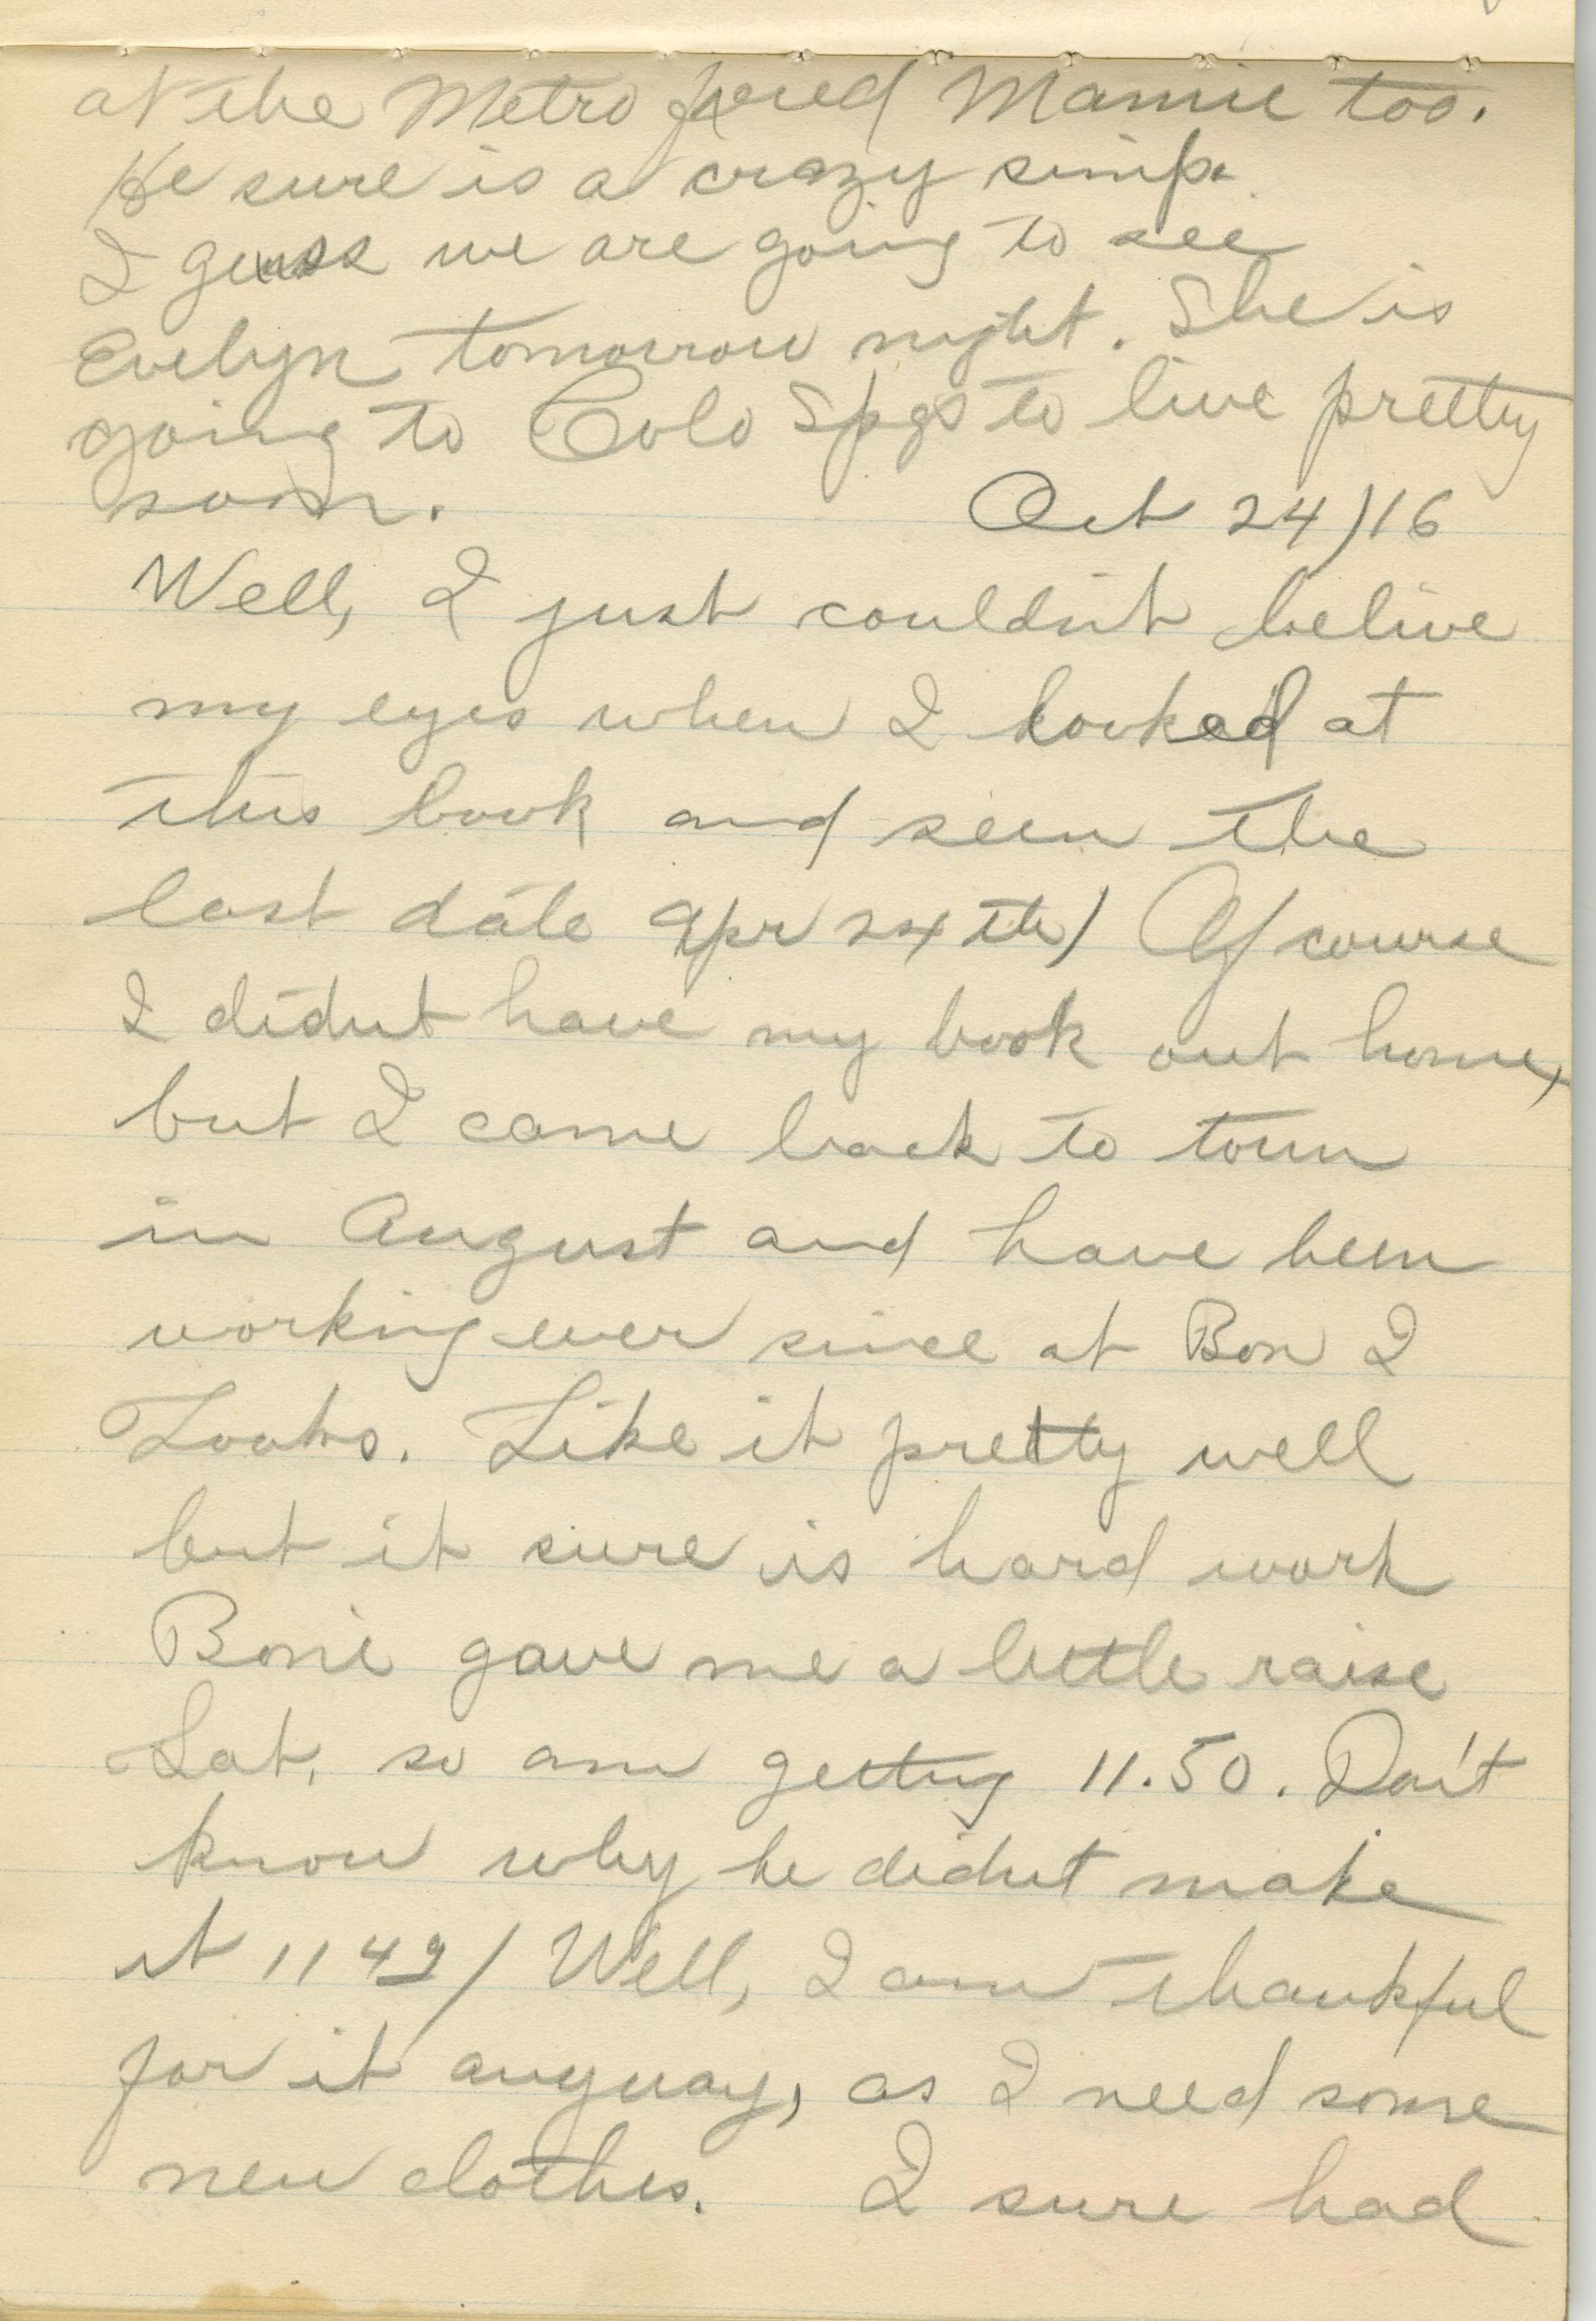 at the Metro fired Mamie too.
He sure is a crazy simp.
I guess we are going to see
Evelyn tomorrow night. She is
going to Colo Spgs to live pretty
soon.
Oct 24/16
Well, I just couldn't belive
my eyes when I looked at
this book and seen the
last date Apr 24th/ Of course
I didnt have my book out home,
but I came back to town
in August and have been
working ever since at Bon I
Looks. Like it pretty well
but it sure is hard work
Bonie gave me a little raise
Sat. so am getting 11.50. Don't
know why he didnt make
it 11 49/ Well, I am thankful
for it anyway, as I need some
new clothes. I sure had